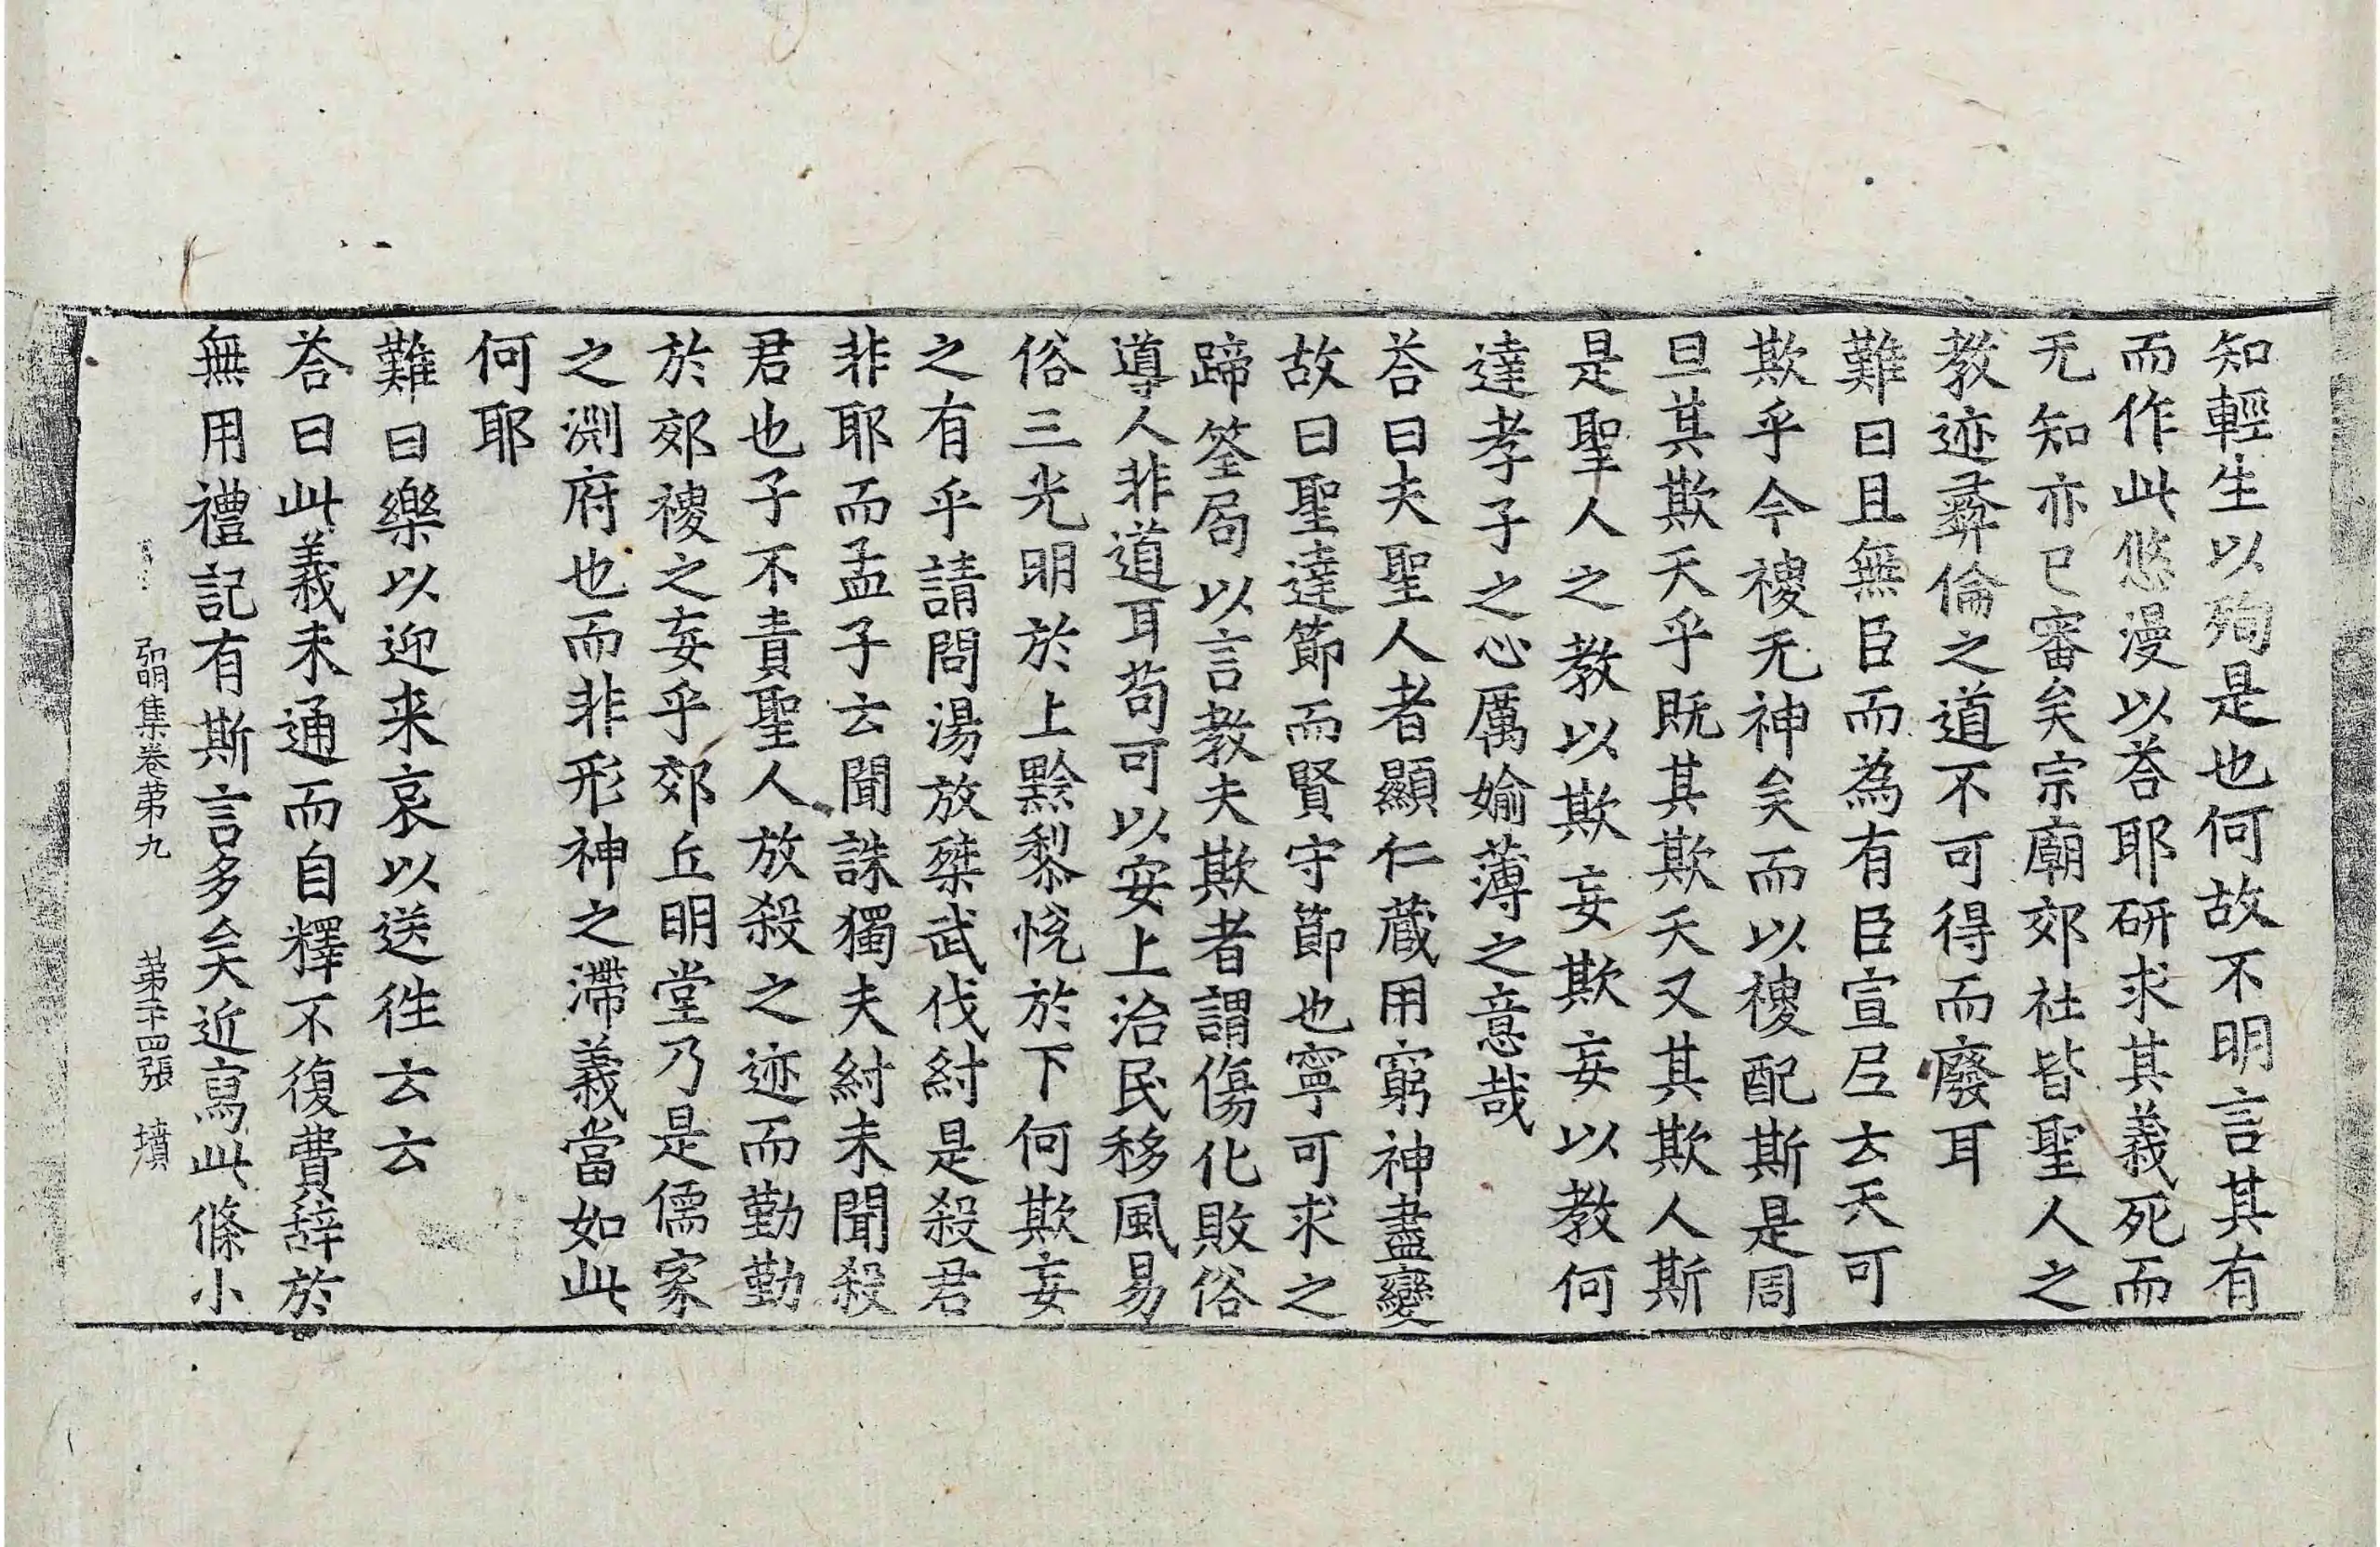 知輕生以殉是也何故不明言其有
而作此悠漫以荅耶研求其義死而
无知亦已審矣宗廟郊社皆聖人之
教迹彛倫之道不可得而廢耳
難曰且無臣而為有臣宣尼云天可
欺乎今稷无神矣而以稷配斯是周
旦其欺天乎既其欺天又其欺人斯
是聖人之教以欺妄欺妄以教何
達孝子之心厲媮薄之意哉
荅曰夫聖人者顯仁蔵用窮神盡變
故曰聖達節而賢守節也寧可求之
蹄筌局以言教夫欺者謂傷化敗俗
導人非道耳苟可以安上治民移風易
俗三光明於上黔黎悅於下何欺妄
之有乎請問湯放桀武伐紂是殺君
非耶而孟子云聞誅獨夫紂未聞殺
君也子不責聖人放殺之迹而勤勤
於郊稷之妄乎郊丘明堂乃是儒家
之淵府也而非形神之滯義當如此
何耶
難曰樂以迎来哀以送徃云云
荅曰此義未通而自釋不復費辭於
無用禮記有斯言多矣近寫此條小
弘明集卷第九 第二十四張 墳